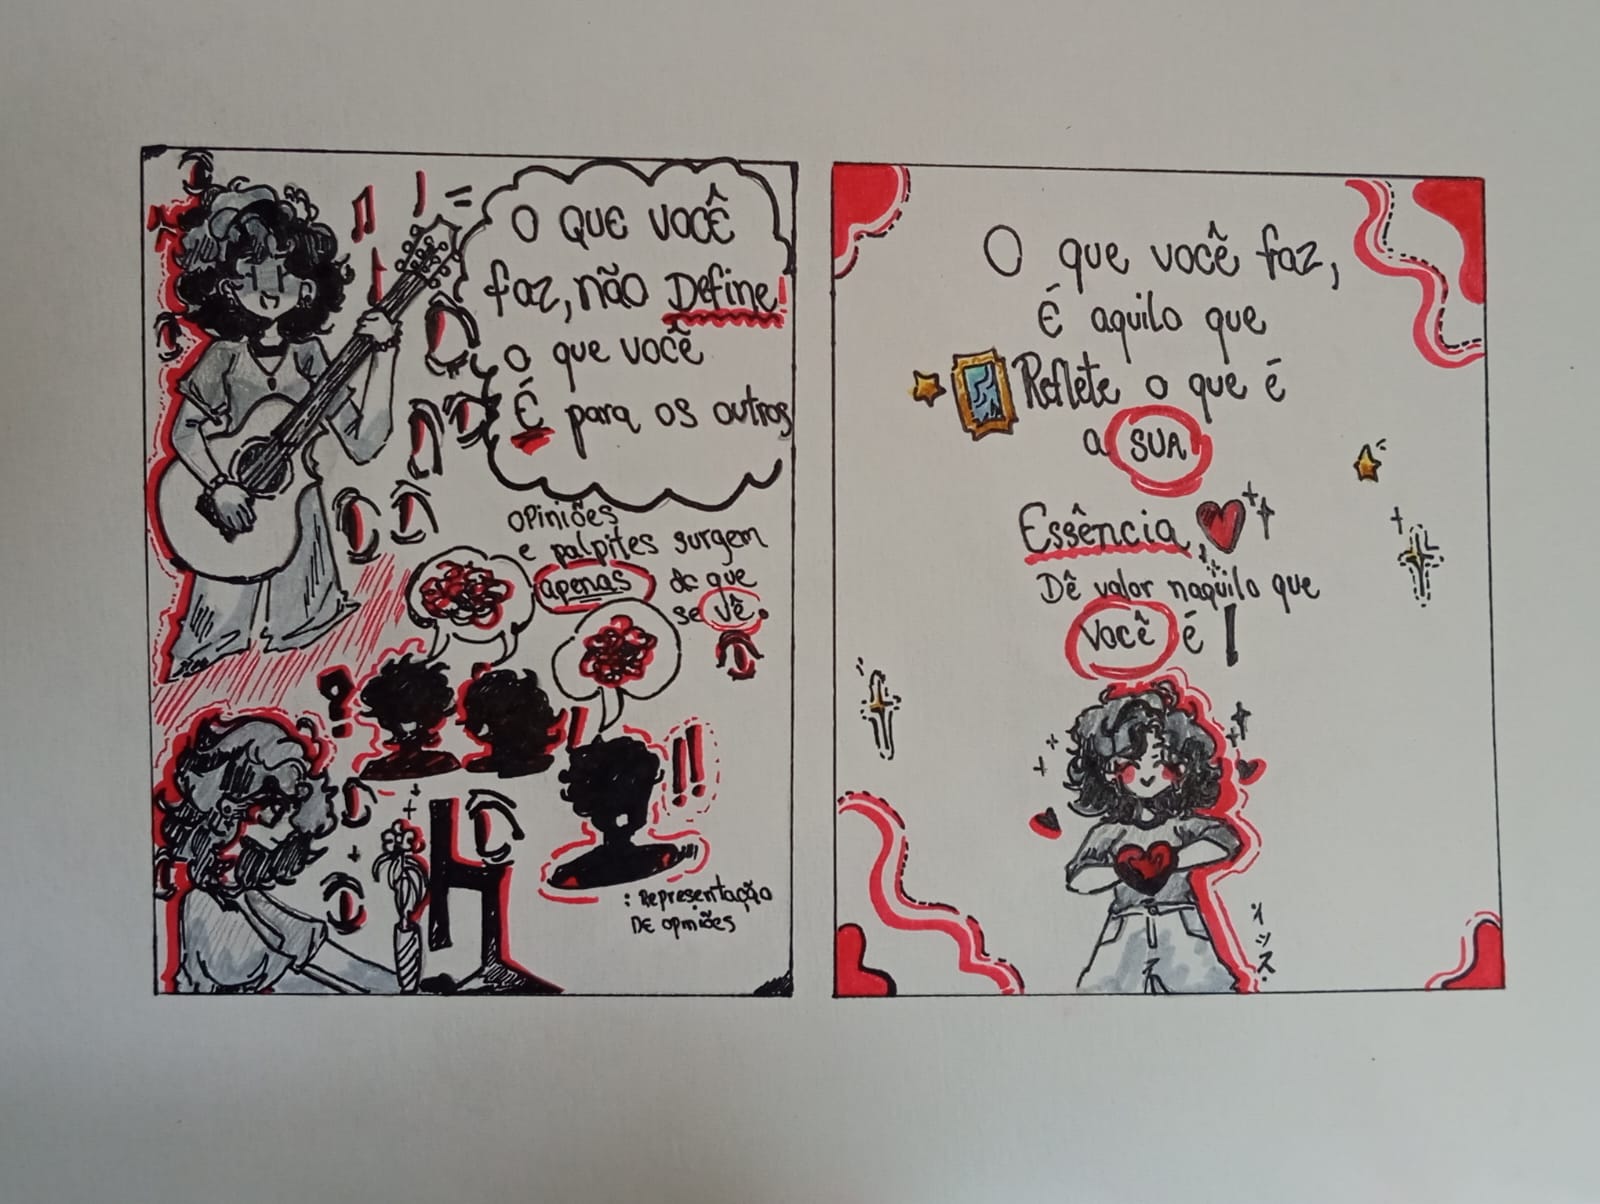 O QUE VOCÊ
faz, não Define!
o que você
É para os outros
OPiniões
e palpites surgem
apenas do que
se vê.
?
!!
: Representação
DE opiniões
O que você faz,
É aquilo que
Reflete o que é
a SUA
Essência
Dê valor naquilo que
você é!
イッス.